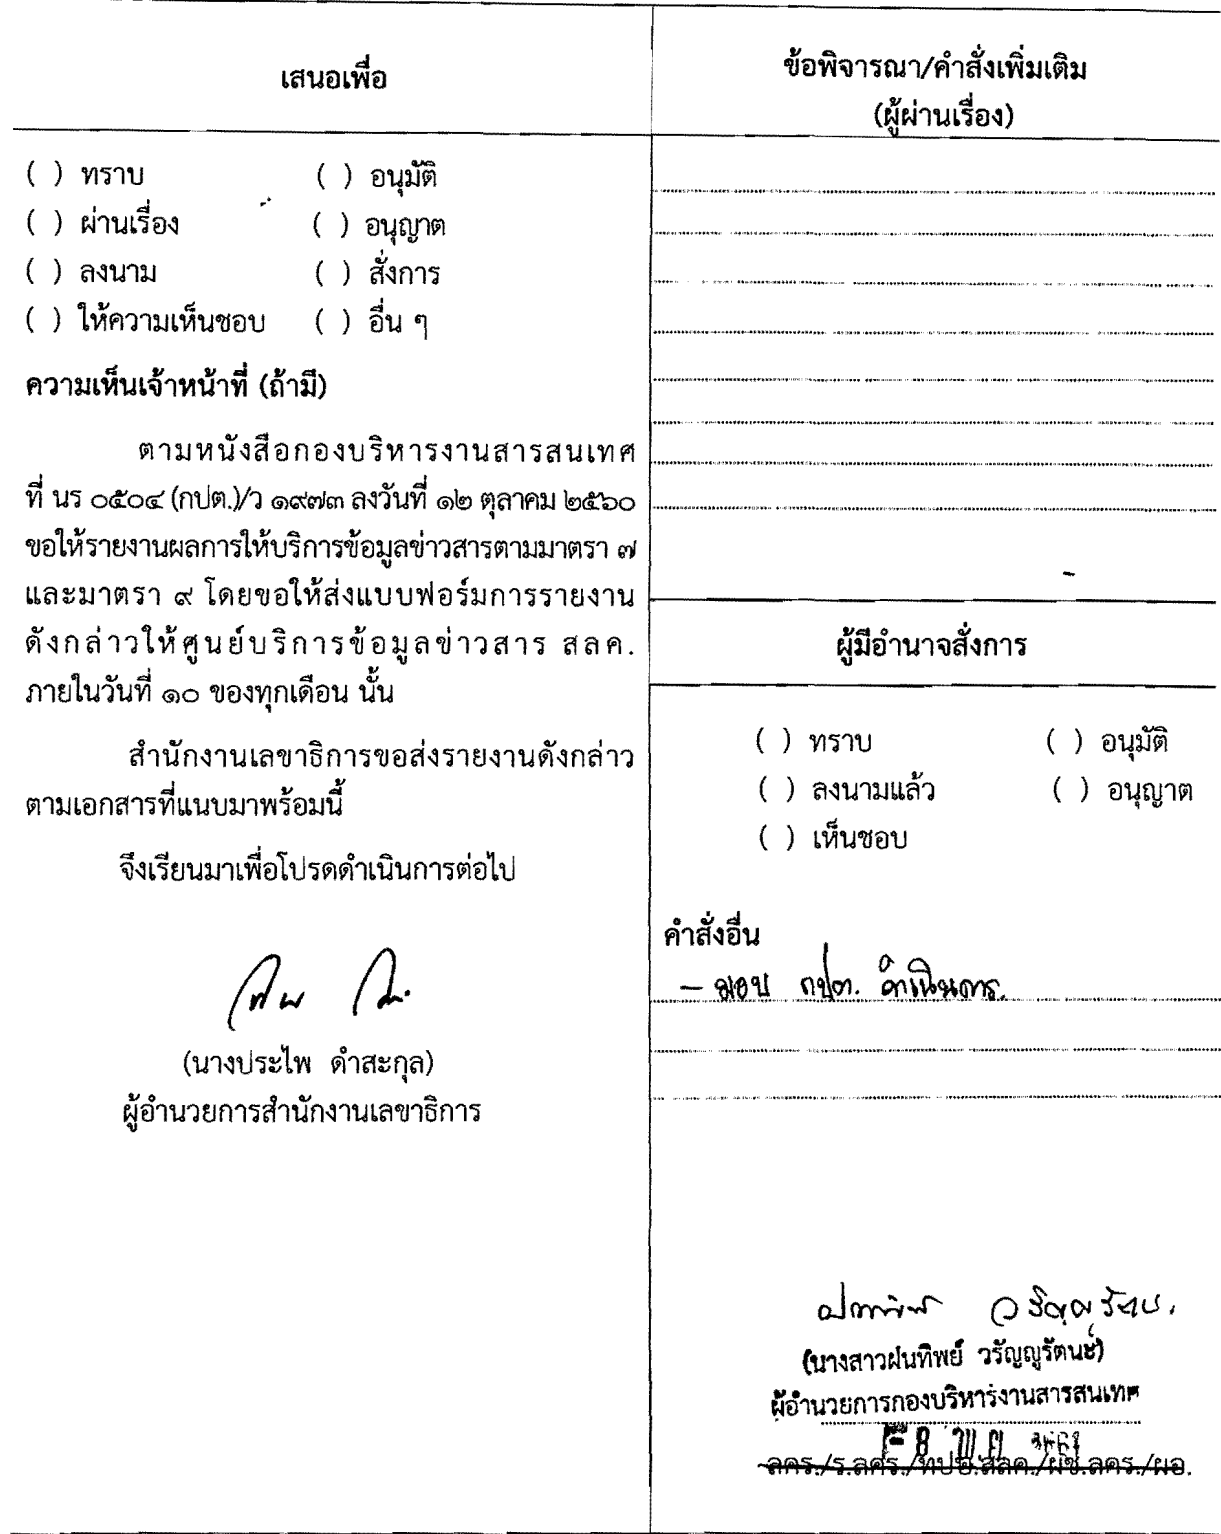 เสนอเพื่อ
( ) ทราบ ( ) อนุมัติ
( ) ผ่านเรื่อง ( ) อนุญาต
( ) ลงนาม ( ) สั่งการ
( ) ให้ความเห็นชอบ ( ) อื่น ๆ
ความเห็นเจ้าหน้าที่ (ถ้ามี)
ตามหนังสือกองบริหารงานสารสนเทศ
ที่ นร ๐๕๐๔ (กปต.)/ว ๑๙๗๓ ลงวันที่ ๑๒ ตุลาคม ๒๕๖๐
ขอให้รายงานผลการให้บริการข้อมูลข่าวสารตามมาตรา ๗
และมาตรา ๙ โดยขอให้ส่งแบบฟอร์มการรายงาน
ดังกล่าวให้ศูนย์บริการข้อมูลข่าวสาร สลค.
ภายในวันที่ ๑๐ ของทุกเดือน นั้น
สำนักงานเลขาธิการขอส่งรายงานดังกล่าว
ตามเอกสารที่แนบมาพร้อมนี้
จึงเรียนมาเพื่อโปรดดำเนินการต่อไป
(นางประไพ ดำสะกุล)
ผู้อำนวยการสำนักงานเลขาธิการ
ข้อพิจารณา/คำสั่งเพิ่มเติม
(ผู้ผ่านเรื่อง)
ผู้มีอำนาจสั่งการ
( ) ทราบ ( ) อนุมัติ
( ) ลงนามแล้ว ( ) อนุญาต
( ) เห็นชอบ
คำสั่งอื่น
– มอบ กปต. ดำเนินการ.
(นางสาวฝนทิพย์ วรัญญูรัตนะ)
ผู้อำนวยการกองบริหารงานสารสนเทศ
ลคร./ร.ลคร./ทปษ.สลค./ผช.ลคร./ผอ.